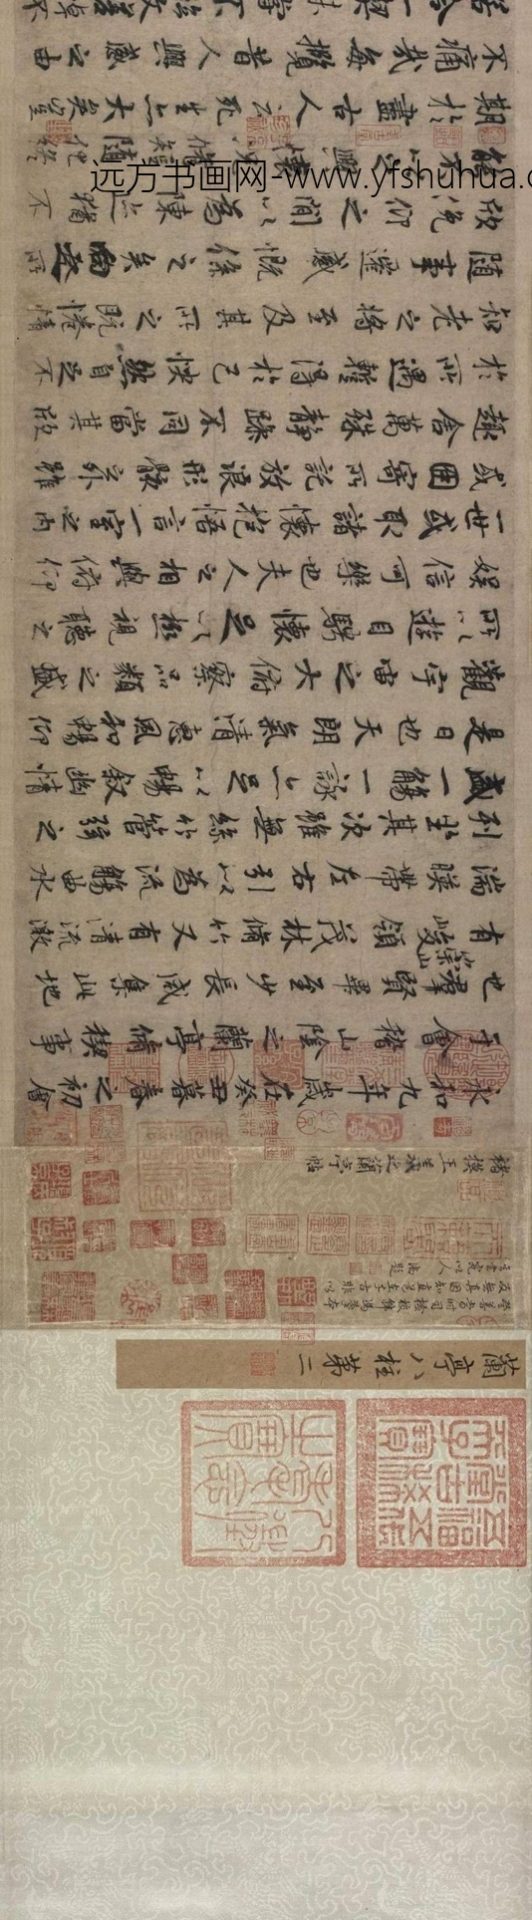 五福五代堂古稀天子寶
八徵耄念之寶
蘭亭八柱第二
褚摸王羲之蘭亭帖
永和九年歲在癸丑暮春之初會
于會稽山陰之蘭亭脩稧事
也羣賢畢至少長咸集此地
有崇山峻領茂林脩竹又有清流激
湍暎帶左右引以為流觴曲水
列坐其次雖無絲竹管弦之
盛一觴一詠亦足以暢敘幽情
是日也天朗氣清惠風和暢仰
觀宇宙之大俯察品類之盛
所以遊目騁懷足以極視聽之
娛信可樂也夫人之相與俯仰
一世或取諸懷抱悟言一室之內
或因寄所託放浪形骸之外雖
趣舍萬殊靜躁不同當其欣
於所遇暫得於己怏然自足不
知老之將至及其所之既惓情
隨事遷感慨係之矣向之所
欣俛仰之間以為陳迹猶不
能不以之興懷況脩短隨化終
期於盡古人云死生亦大矣豈
不痛哉每攬昔人興感之由
若合一契未嘗不臨文嗟悼不
远方书画网-www.yfshuhua.co